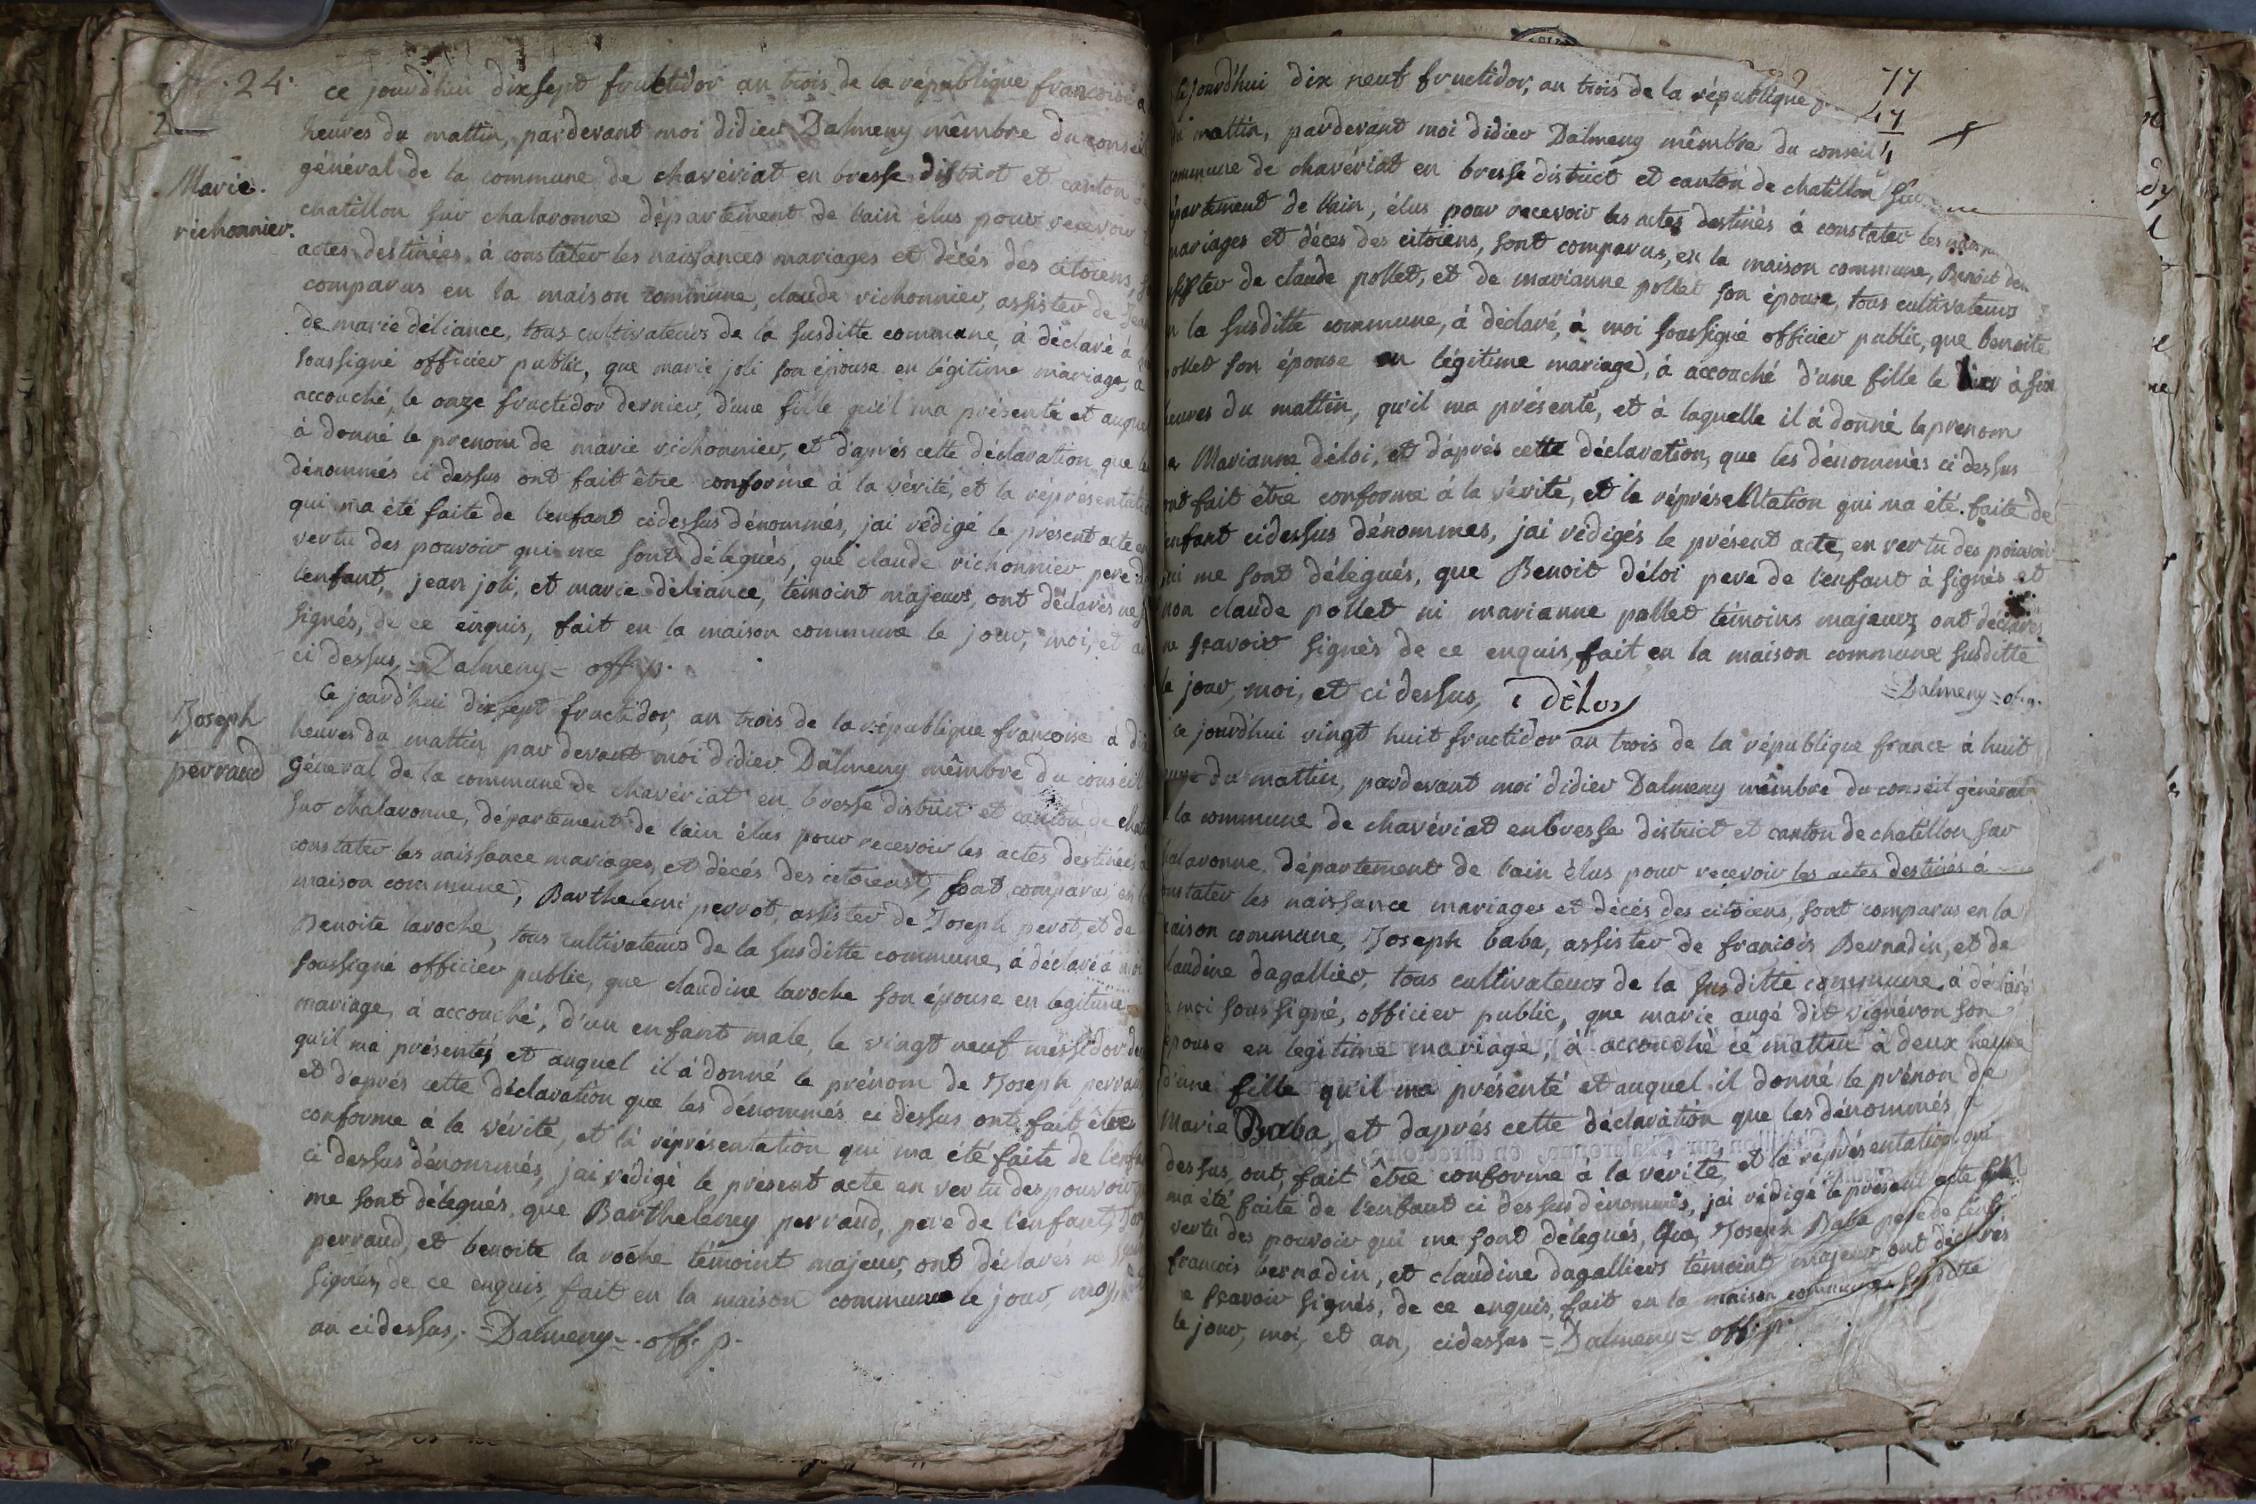 24.
Marie.
richonnier.
ce jourd'hui dix sept fructidor an trois de la république francoise a
heures du mattin, pardevant moi didier Dalmeny mêmbre du conseil
général de la commune de chavériat en bresse district et canton
chatillon sur chalaronne département de l'ain élus pour recevoir
actes destinées à constater les naissances mariages et décés des citoiens,
comparus en la maison commune, claude richonnier, assister de
de marie déliance, tous cultivateurs de la susditte commune, à déclaré à
soussigné officier public, que marie joli son épouse en légitime mariage, à
accouché le onze fructidor dernier, d'une fille qu'il ma présenté et auquel
à donné le prenom de marie richonnier, et d'aprés cette déclaration que
dénommés ci dessus ont fait être conforme à la vérité, et la réprésentati
qui ma été faite de l'enfant cidessus dénommés, jai rédigé le présent acte en
vertu des pouvoir qui me sont délegués, que claude richonnier pere
l'enfant, jean joli, et marie déliance, témoint majeurs, ont déclarés ne
signés, de ce enquis, fait en la maison commune le jour, moi, et
ci dessus, = Dalmeny = off. p.
Joseph
perraud
Ce jourd'hui dix sept fructidor, an trois de la république francoise à
heures du mattin par devant moi didier Dalmeny mêmbre du conseil
général de la commune de chavériat en bresse district et canton de
sur chalaronne, département de l'ain élus pour recevoir les actes destinées
constater les naissance mariages, et décés des citoienst, sont comparus en
maison commune, Barthelemi perrot, assister de Joseph perot, et de
Benoite laroche, tous cultivateurs de la susditte commune, à déclaré à moi
soussigné officier public, que claudine laroche son épouse en legitime
mariage, à accouché, d'un enfant male, le vingt neuf méssidor
qu'il ma présentés et auquel il à donné le prénom de Joseph perraud
et d'aprés cette déclaration que les dénommés ci dessus ont fait être
conforme à la vérité, et la réprésentation qui ma été faite de l'enfa
ci dessus dénommés, jai rédigé le présent acte en vertu des pouvoir
me sont délegués, que Barthelemy perraud, pere de l'enfant,
perraud, et benoite la roche témoint majeur, ont déclarés ne
signés, de ce enquis, fait en la maison commune le jour, moy,
an cidessus, = Dalmeny = off. p.
77
jourd'hui dix neuf fructidor, an trois de la république
du mattin, pardevant moi didier Dalmeny mêmbre du conseil
commune de chavériat en bresse district et canton de chatillon sur
épartement de l'ain, élus pour recevoir les actes destinés à constater les
mariages et déces des citoiens, sont comparus, en la maison commune, Benoit
ssister de claude pollet, et de marianne pollet son épouse, tous cultivateurs
la susditte commune, à déclaré, à moi soussigné officier public, que benoite
pollet son épouse en légitime mariage, à accouché d'une fille le hier à six
heures du mattin, qu'il ma présenté, et à laquelle il à donné le prenom
Marianne déloi, et d'aprés cette déclaration, que les dénommés ci dessus
ont fait être conforme à la vérité, et la réprésentation qui ma été faite de
enfant cidessus dénommes, jai rédigés le présent acte, en vertu des pouvoir
qui me sont délegués, que Benoit déloi pere de l'enfant à signés et
non claude pollet ni marianne pollet témoins majeurs ont déclarés
ne scavoir signés de ce enquis, fait en la maison commune susditte
le jour, moi, et ci dessus,
= Dalmeny = of. p.
ce jourd'hui vingt huit fructidor an trois de la république france à huit
du mattin, pardevant moi didier Dalmeny mêmbre du conseil général
la commune de chavériat en bresse district et canton de chatillon sur
halaronne, département de l'ain élus pour recevoir les actes destinés à
onstater les naissance mariages et décés des citoiens, sont comparus en la
maison commune, Joseph baba, assister de francois Bernadin, et de
laudine dagallier, tous cultivateurs de la susditte commune à déclaré
à moi soussigné, officier public, que marie augé dit vignéron son
épouse en legitime mariage, à accouché ce mattin à deux heure
d'une fille qu'il ma présenté et auquel il donné le prénon de
Marie Baba, et d'aprés cette déclaration que les dénommés
dessus, ont, fait être conforme à la verité, et la réprésentation qui
ma été faite de l'enfant ci dessus dénommés, jai rédigé le présent acte en
vertu des pouvoir qui me sont délegués, Que, Joseph Baba pere de
francois bernadin, et claudine dagalliers témoint majeur ont déclarés
scavoir signés, de ce enquis, fait en la maison commune susditte
le jour, moi, et an, cidessus = Dalmeny = off. p.